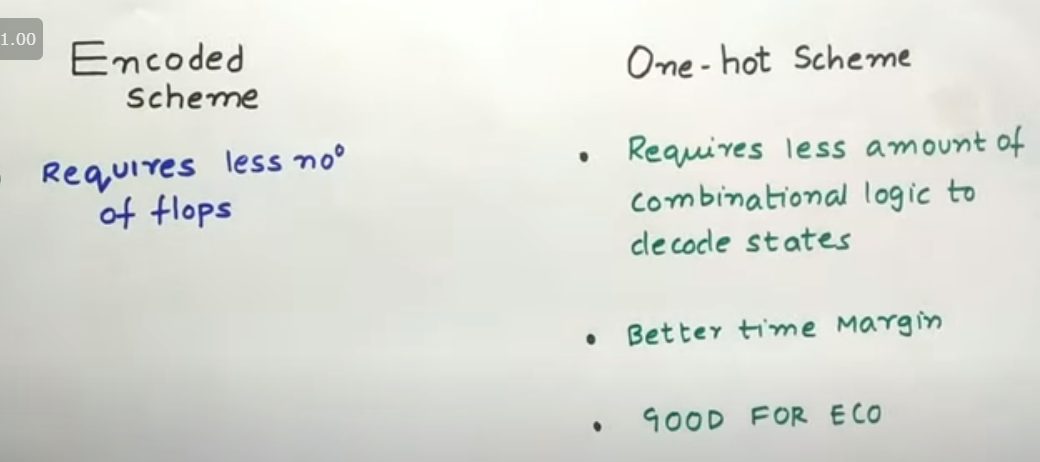 1.00
Encoded
scheme
Requires less no°
of flops
One-hot Scheme
• Requires less amount of
combinational logic to
decode states
• Better time Margin
• GOOD FOR ECO